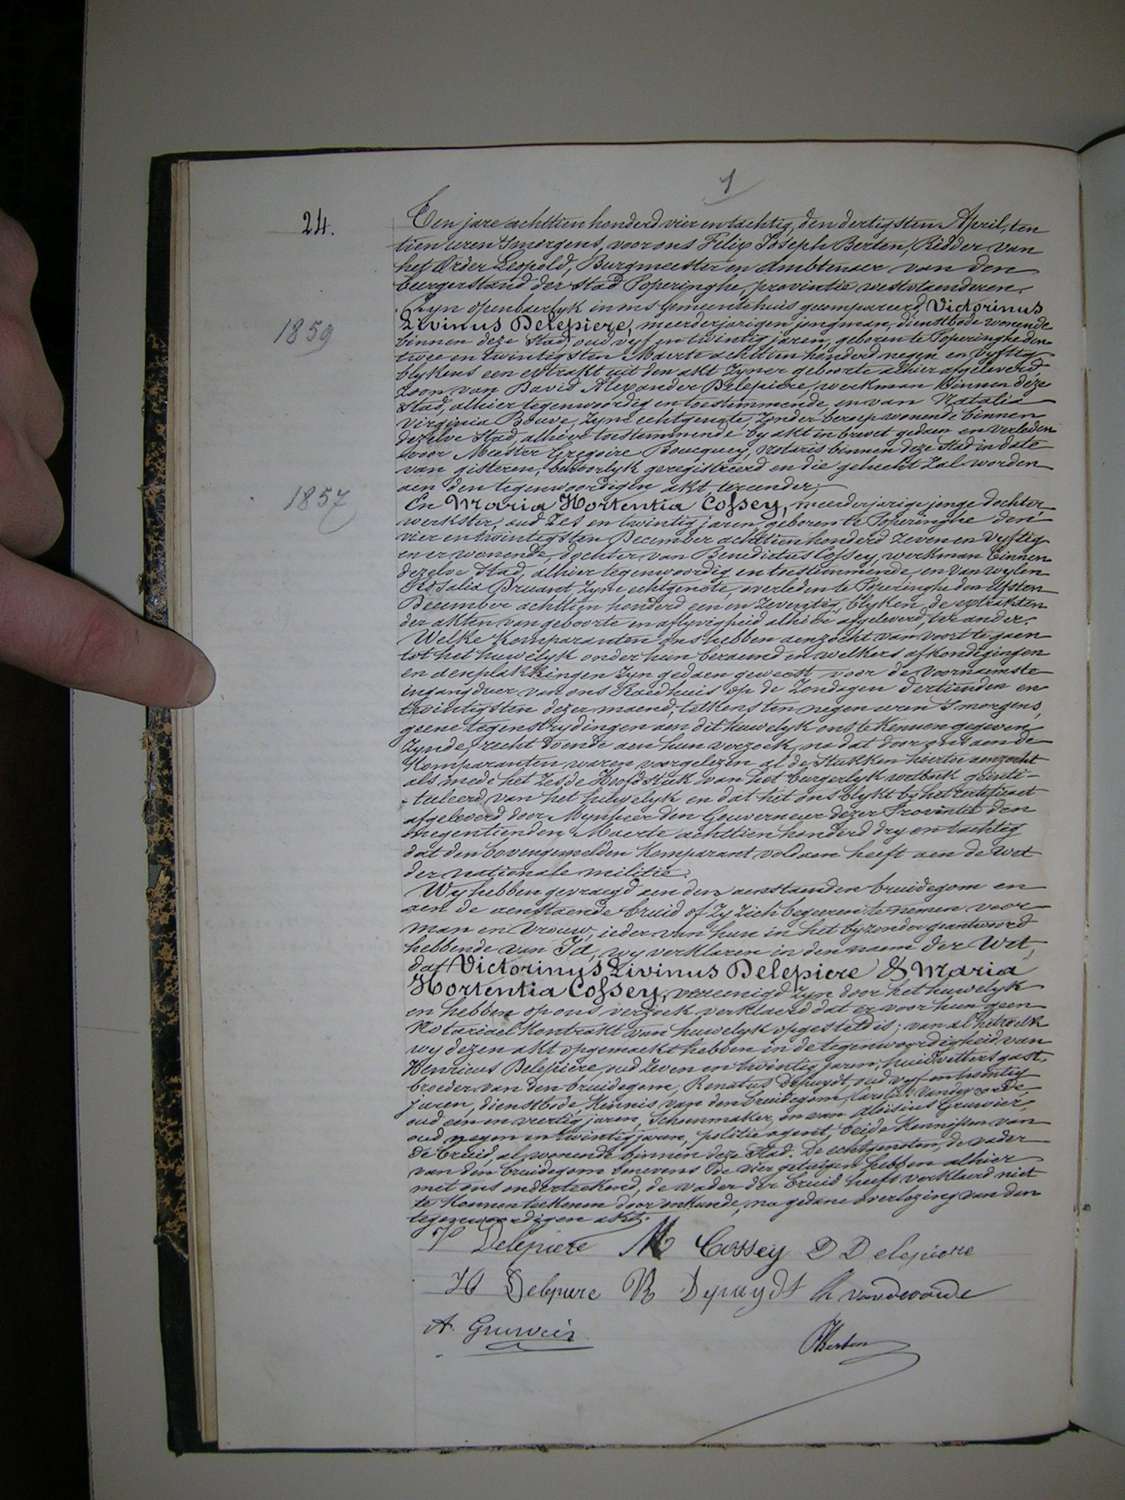 1
24.
Ten jare achttien honderd vier en tachtig, den dertigsten April, ten
tien uren smorgens, voor ons Felix Joseph Berten, Ridder van
het Order Leopold, Burgmeester en Ambtenaer van den
burgerstand der stad Poperinghe, provintie westvlaenderen,
Zyn openbaerlyk in ons Gemeentehuis gecompareerd Victorinus
1859
Livinus Delepiere, meerderjarigen jongman, dienstbode wonende
binnen deze stad, oud vyf en twintig jaren, geboren te Poperinghe den
twee en twintigsten Maerte achttien honderd negen en vyftig
blykens een extrakt uit den akt zyner geboorte alhier afgeleverd,
zoon van David Alexander Delepiere, werkman binnen deze
stad, alhier tegenwoordig en toestemmende, en van Natalia
Virginia Bouve, zyne echtgenote, zonder beroep wonende binnen
dezelve stad, alhier toestemmende by akt in brevet gedaen en verleden
voor Meester Gregoire Boucquey, notaris binnen deze stad in date
van gisteren, behoorlyk geregistreerd en die gehecht zal worden
aen den tegenwoordigen akt tereender;
1857
En Maria Hortentia Cossey, meerderjarige jonge dochter
werkster, oud zes en twintig jaren, geboren te Poperinghe den
vier en twintigsten December achttien honderd zeven en vyftig
en er wonende, dochter van Benedictus Cossey, werkman binnen
dezelve stad, alhier tegenwoordig en toestemmende, en van wylen
Rosalia Pruant zyne echtgenote, overleden te Poperinghe den elfsten
December achttien honderd een en zeventig, blyken de extrakten
der akten van geboorte en aflyvigheid alhier afgeleverd, ter ander.
Welke komparanten ons hebben aenzocht van voort te gaen
tot het huwelyk onder hun beraemd en welkers afkondigingen
en aenplakkingen zyn gedaen geweest voor de voornaemste
ingangdeur van ons Raedhuis op de zondagen dertienden en
twintigsten dezer maend, telkens ten negen uren s'morgens,
geene tegenstrydingen aen dit huwelyk ons te kennen gegeven
zynde, recht doende aen hun verzoek, na dat door ons aen de
komparanten waren voorgelezen al de stukken hiertoe aenzocht
als mede het zesde Hoofdstuk van het burgerlyk wetboek geinti-
tuleerd van het huwelyk en dat het ons blykt by het certificaet
afgeleverd door Mynheer den Gouverneur dezer Provintie den
negentienden Maerte achttien honderd dry en tachtig
dat den bovengemelden komparant voldaen heeft aen de wet
der nationale militie.
Wy hebben gevraegd aen den aenstaenden bruidegom en
aen de aenstaende bruid of zy zich begeeren te nemen voor
man en vrouw, ieder van hun in het byzonder geantwoord
hebbende van Ja, wy verklaren in den naem der Wet,
dat Victorinus Livinus Delepiere & Maria
Hortentia Cossey, vereenigd zyn door het huwelyk
en hebben op ons verzoek verklaerd dat er voor hun geen
Notariael kontrakt van huwelyk opgesteld is; van al hetwelk
wy dezen akt opgemaekt hebben in de tegenwoordigheid van
Henricus Delepiere oud zeven en twintig jaren, huidvettersgast,
broeder van den bruidegom, Renatus Depuydt, oud vyf en twintig
jaren, dienstbode, kennis van den bruidegom, Carolus Vandevoorde
oud een en vertig jaren, schoenmaker, en van Aloisius Gruwier,
oud negen en twintig jaren, politie agent, beide kennissen van
de bruid, al wonende binnen deze stad. De echtgenoten, de vader
van den bruidegom benevens de vier getuigen hebben alhier
met ons onderteekend, de vader der bruid heeft verklaerd niet
te kunnen teekenen door onkunde, na gedane overlezing van den
tegenwoordigen akt.
Delepiere M Cossey D Delepiere
H Delepiere R Depuydt Ch vandevoorde
A. Gruwier
Berten